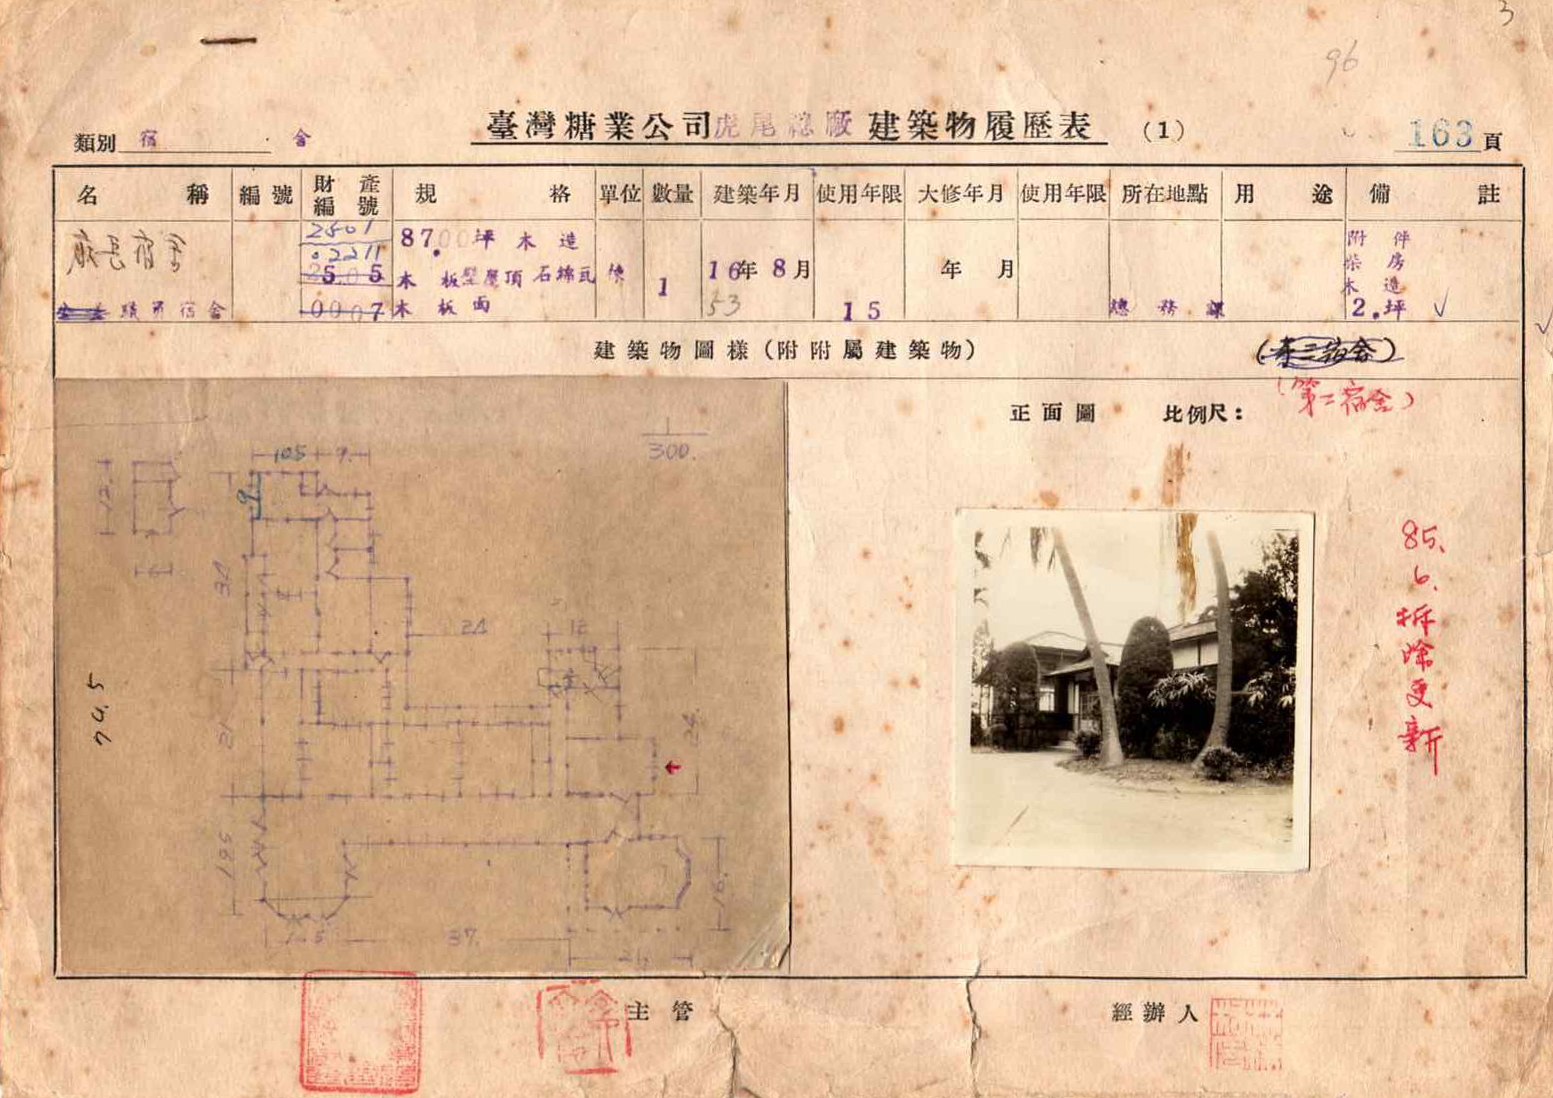 3
96
臺灣糖業公司虎尾總廠建築物履歷表 (1)
類別 宿 舍
163頁
名稱 編號 財產編號 規格 單位 數量 建築年月 使用年限 大修年月 使用年限 所在地點 用途 備註
廠長宿舍
職員宿舍
2501
02211
2505
0007
87.00坪 木造
木板壁屋頂石綿瓦
木板面
棟
1
16年8月
53
15
年 月
總務課
附件
柴房
木造
2.坪
建築物圖樣(附附屬建築物)
(第二宿舍)
正面圖 比例尺:
300.
105 9.
12.
9
34
24 12
21
24.
74.5
185
16.
15 37.
85.
6.
拆
除
更
新
主管
經辦人